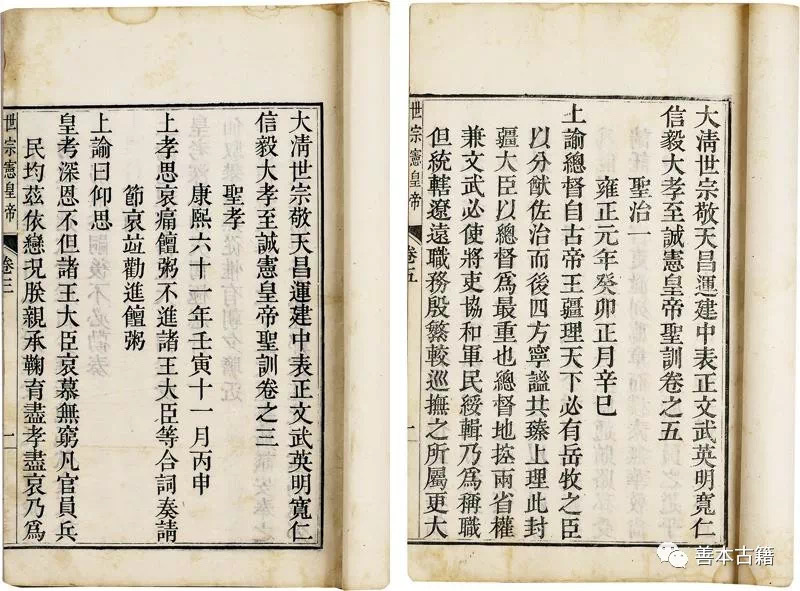 大清世宗敬天昌運建中表正文武英明寬仁
信毅大孝至誠憲皇帝聖訓卷之三
聖孝
康熙六十一年壬寅十一月丙申
上孝思哀痛饘粥不進諸王大臣等合詞奏請
節哀竝勸進饘粥
上諭曰仰思
皇考深恩不但諸王大臣哀慕無窮凡官員兵
民均茲依戀況朕親承鞠育盡孝盡哀乃爲
世宗憲皇帝 卷三 一
大清世宗敬天昌運建中表正文武英明寬仁
信毅大孝至誠憲皇帝聖訓卷之五
聖治一
雍正元年癸卯正月辛巳
上諭總督自古帝王疆理天下必有岳牧之臣
以分猷佐治而後四方寧謐共臻上理此封
疆大臣以總督爲最重也總督地控兩省權
兼文武必使將吏協和軍民綏輯乃爲稱職
但統轄遼遠職務殷繁較巡撫之所屬更大
世宗憲皇帝 卷五 一
善本古籍